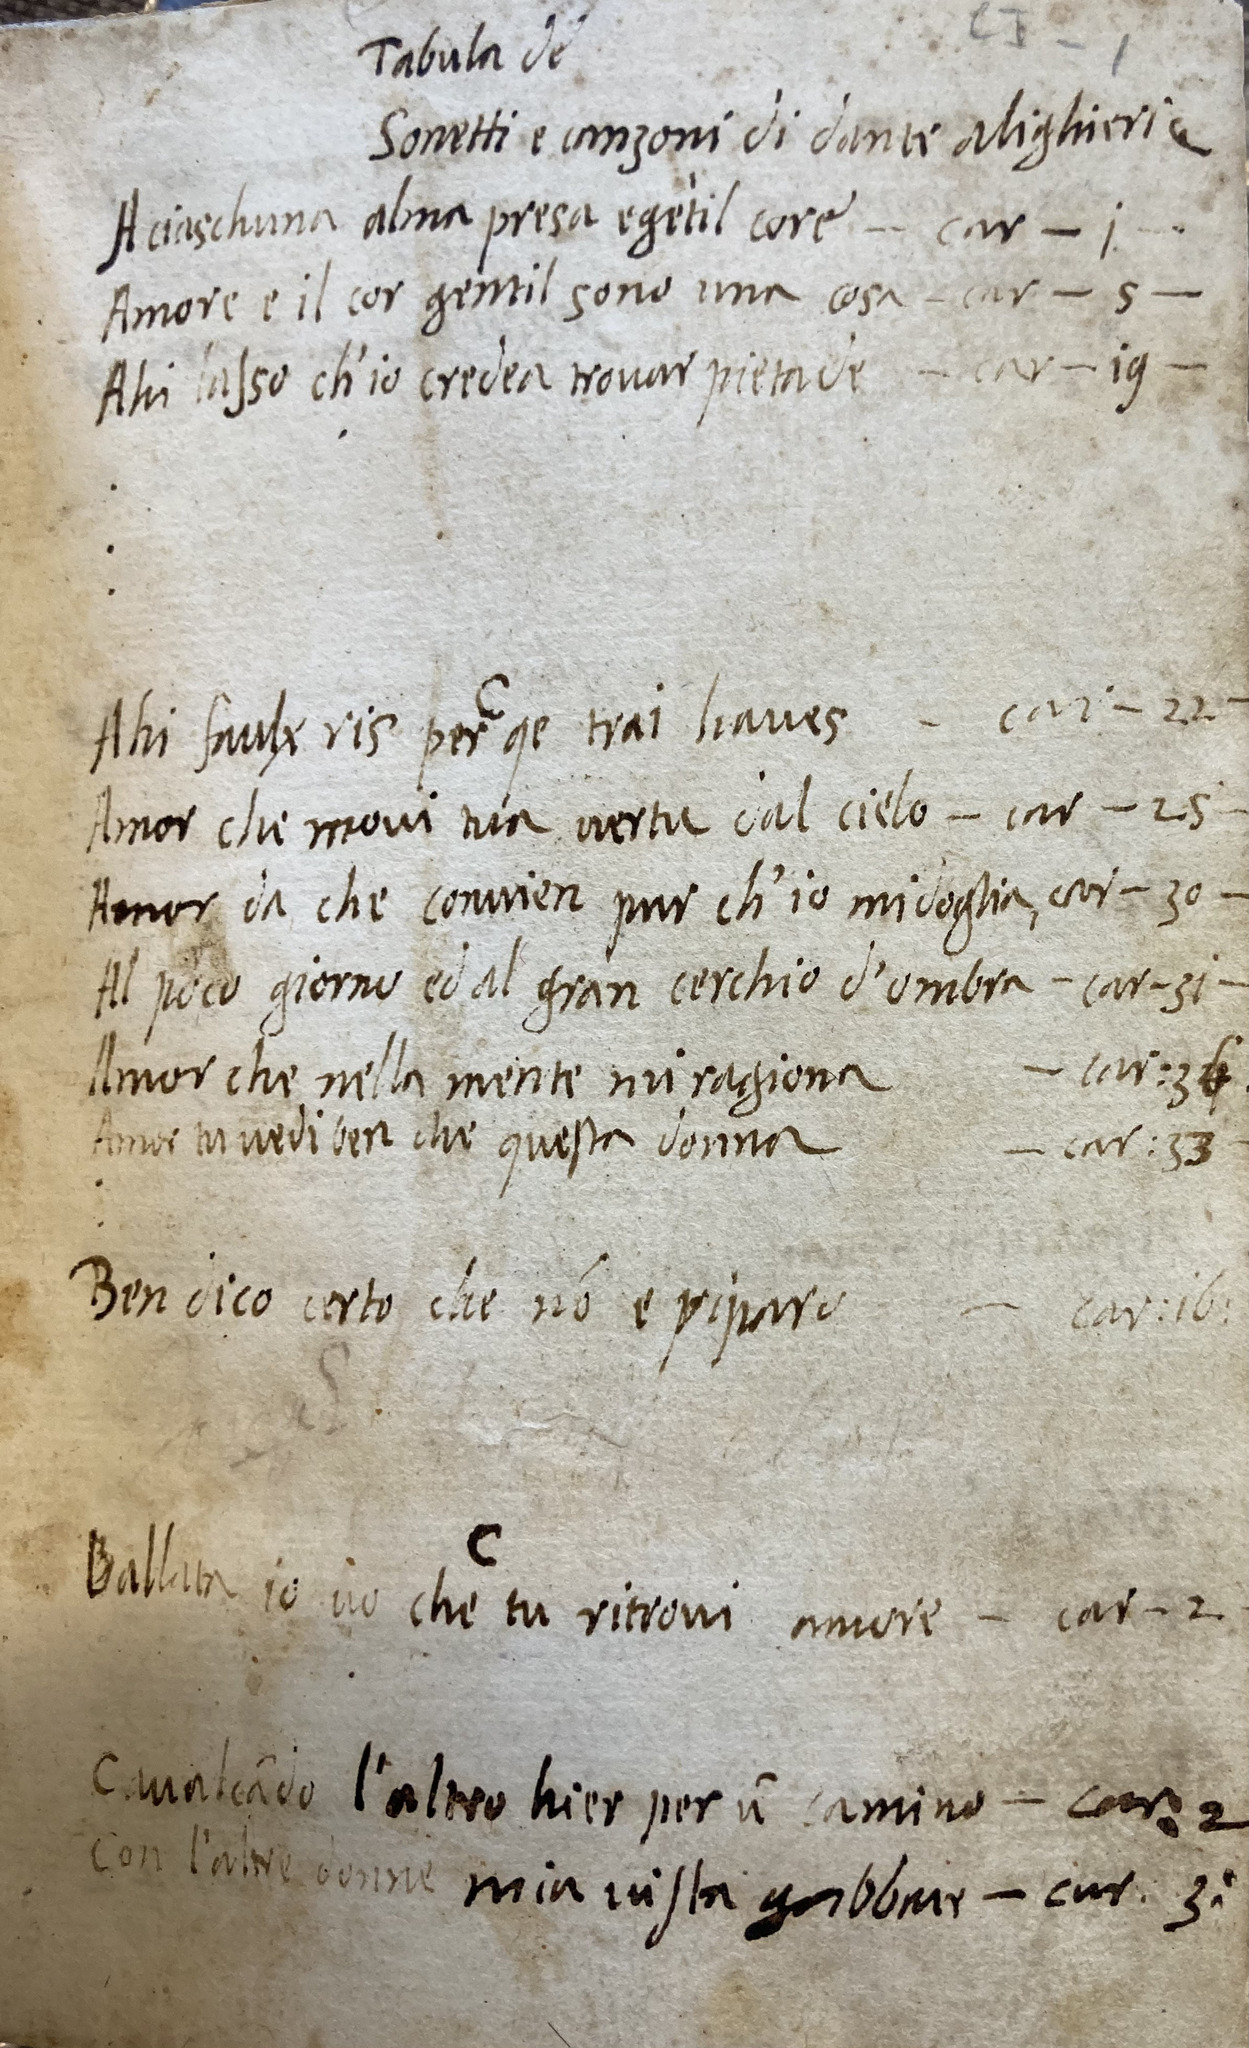 Tabula de
Sonetti e canzoni di dante alighieri
A ciaschuna alma presa e gẽtil core — car — i —
Amore e il cor gentil sono una cosa — car — 5 —
Ahi lasso ch'io credea trouar pietade — car — 19 —
C
Ahi faulx ris per qe trai haues — car — 22 —
Amor che moui tua uertu dal cielo — car — 25 —
Amor da che conuien pur ch'io mi doglia, car — 30 —
Al poco giorno ed al gran cerchio d'ombra — car — 31 —
Amor che nella mente mi ragiona — car: 36
Amor tu uedi ben che questa donna — car: 33
Ben dico certo che nõ e riparo — car: 16:
C
Ballata io uo che tu ritroui amore — car — 2
Caualcãdo l'altro hier per ũ camino — car: 2
Con l'altre donne mia uista gabbate — car. 3: